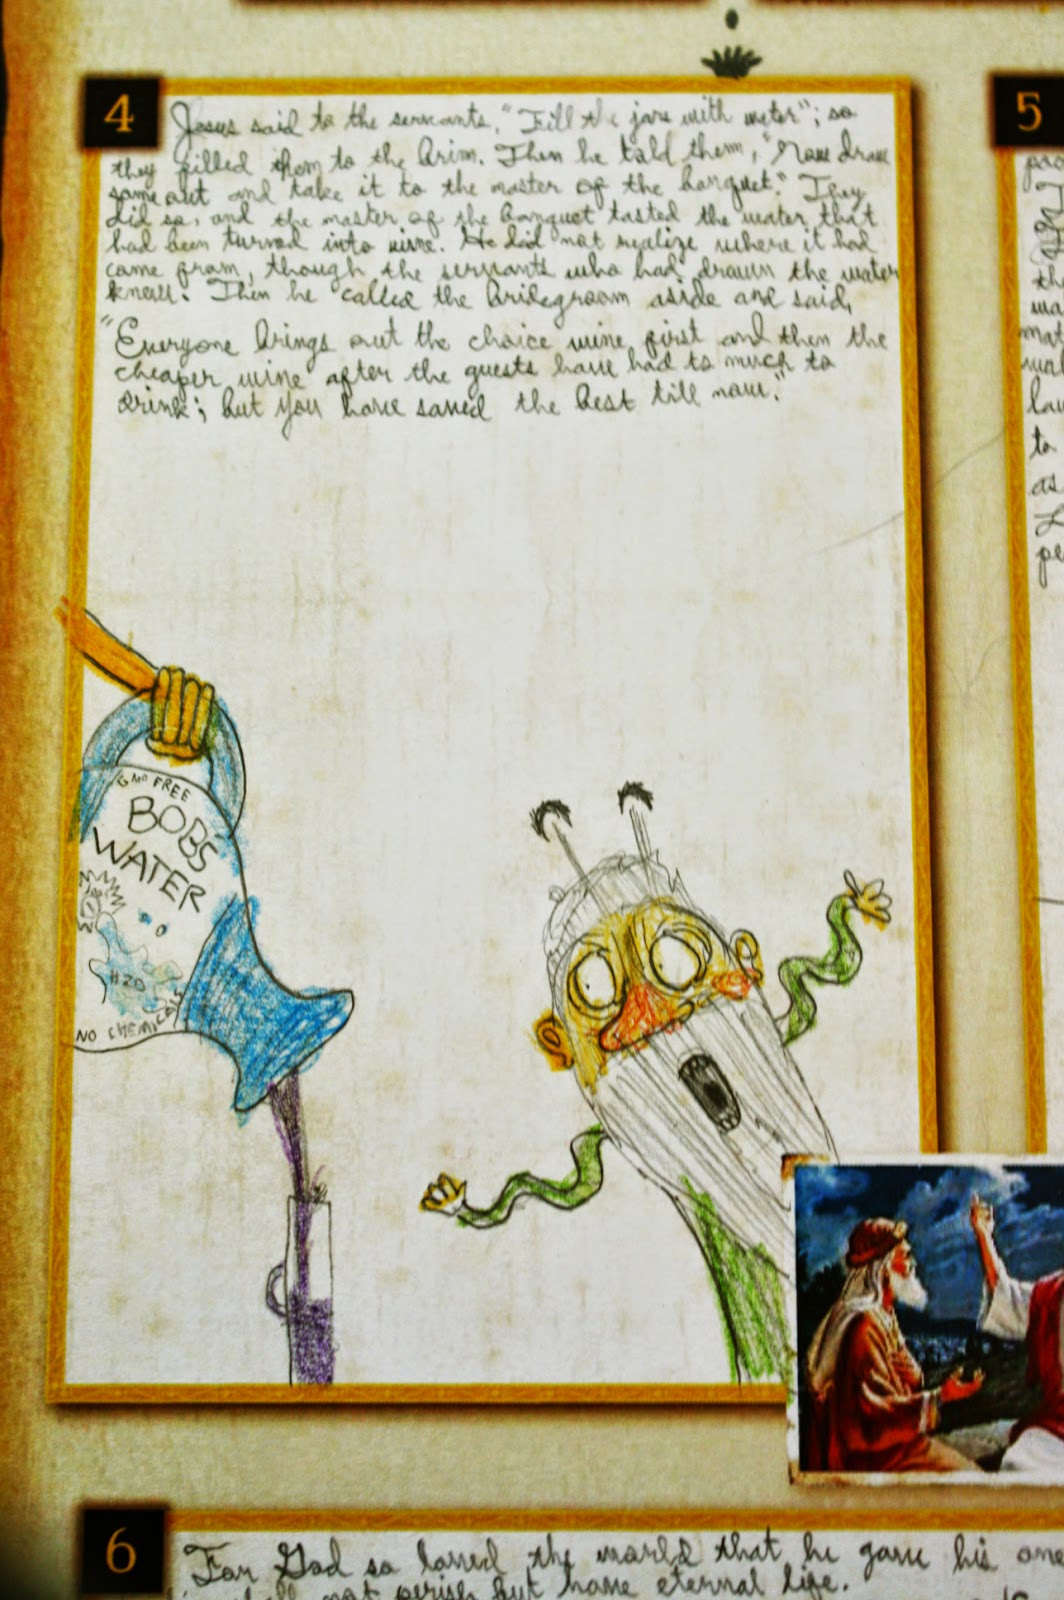 4
Jesus said to the servants, "Fill the jars with water"; so
they filled them to the brim. Then he told them, "Now draw
some out and take it to the master of the banquet." They
did so, and the master of the banquet tasted the water that
had been turned into wine. He did not realize where it had
come from, though the servants who had drawn the water
knew. Then he called the bridegroom aside and said,
"Everyone brings out the choice wine first and then the
cheaper wine after the guests have had to much to
drink; but you have saved the best till now."
GMO FREE
BOBS
WATER
H2O
NO CHEMICALS
5
the
wa
mat
wat
to
as
pe
6
For God so loved the world that he gave his one
not perish but have eternal life.